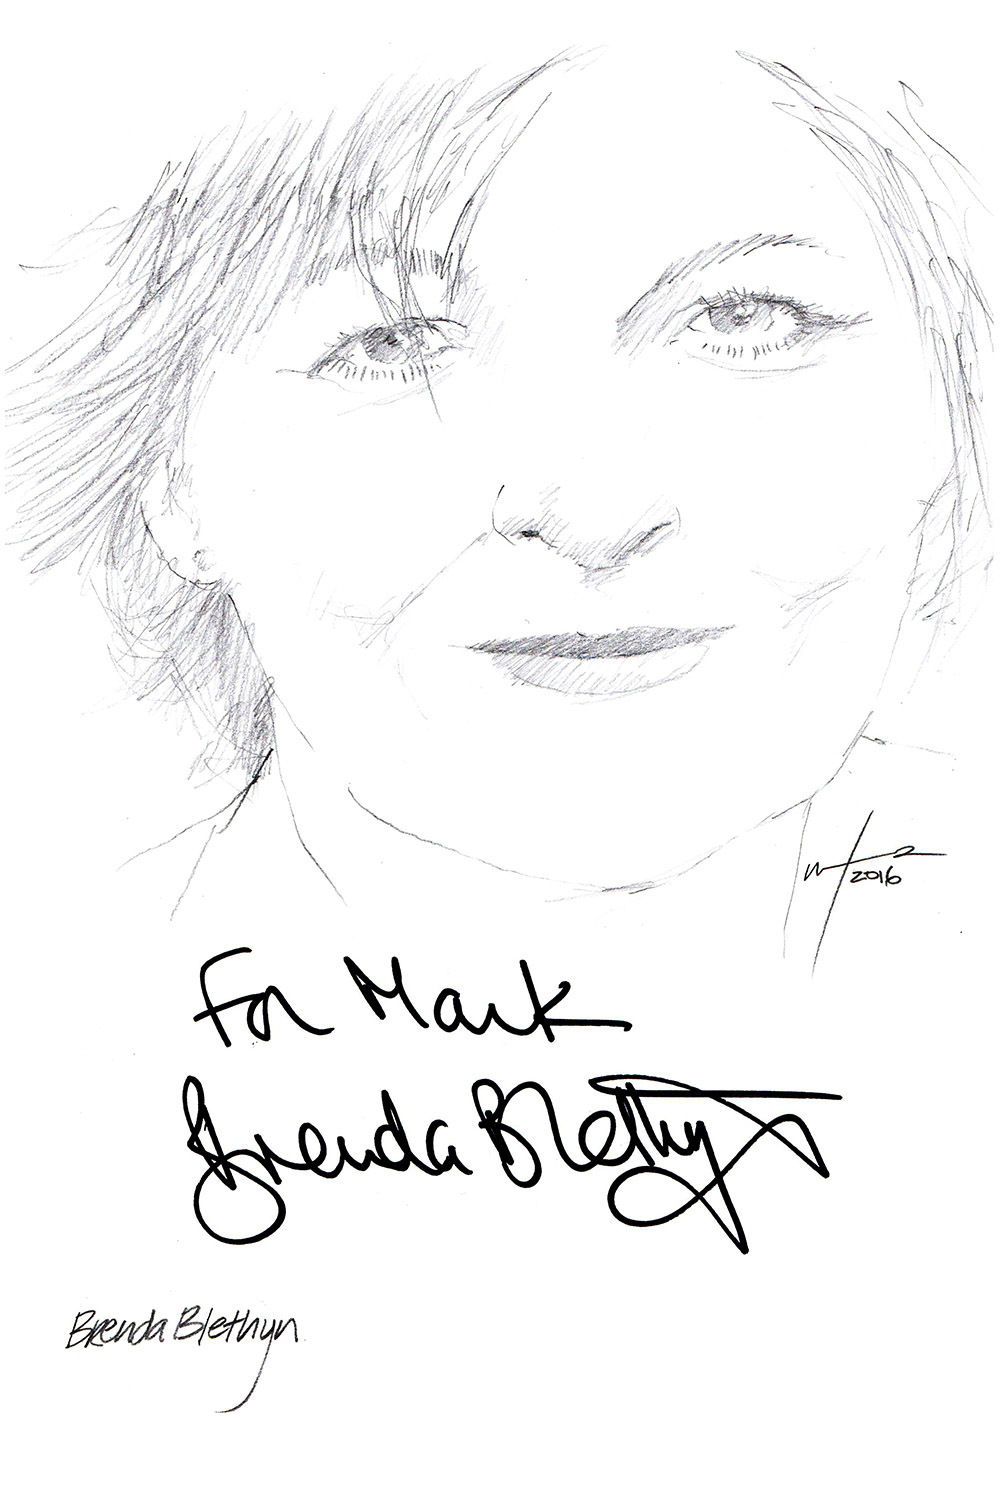 2016
For Mark
Brenda Blethyn
Brenda Blethyn